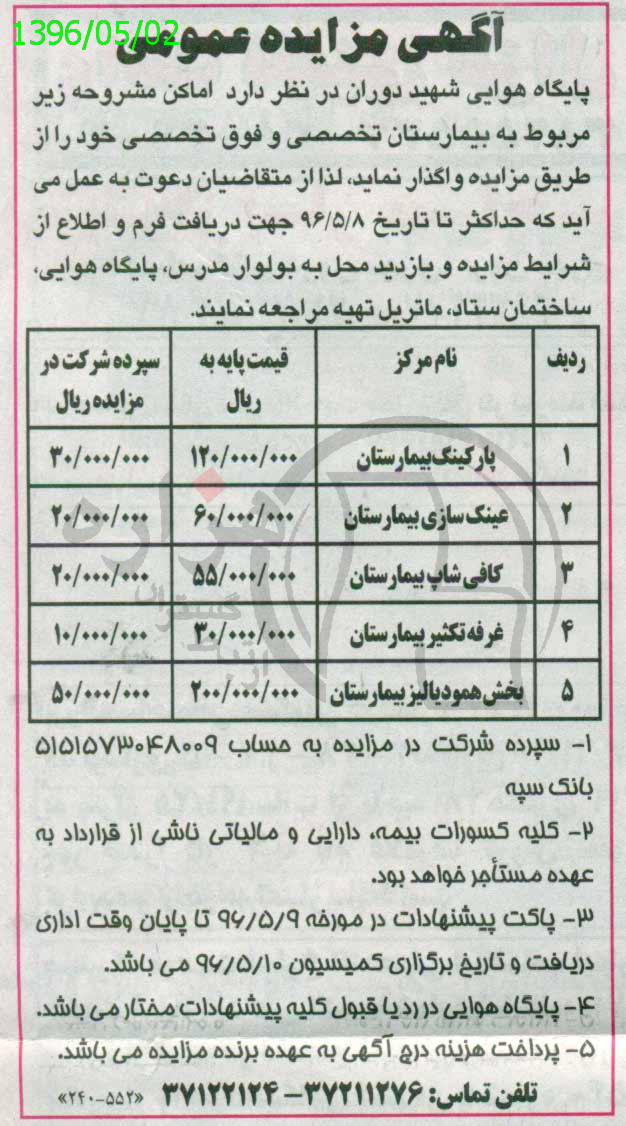 1396/05/02
آگهی مزایده عمومی
پایگاه هوایی شهید دوران در نظر دارد اماکن مشروحه زیر
مربوط به بیمارستان تخصصی و فوق تخصصی خود را از
طریق مزایده واگذار نماید، لذا از متقاضیان دعوت به عمل می
آید که حداکثر تا تاریخ ۹۶/۵/۸ جهت دریافت فرم و اطلاع از
شرایط مزایده و بازدید محل به بولوار مدرس، پایگاه هوایی،
ساختمان ستاد، ماتریل تهیه مراجعه نمایند.
ردیف نام مرکز قیمت پایه به ریال سپرده شرکت در مزایده ریال
۱ پارکینگ بیمارستان ۱۲۰/۰۰۰/۰۰۰ ۳۰/۰۰۰/۰۰۰
۲ عینک سازی بیمارستان ۶۰/۰۰۰/۰۰۰ ۲۰/۰۰۰/۰۰۰
۳ کافی شاپ بیمارستان ۵۵/۰۰۰/۰۰۰ ۲۰/۰۰۰/۰۰۰
۴ غرفه تکثیر بیمارستان ۳۰/۰۰۰/۰۰۰ ۱۰/۰۰۰/۰۰۰
۵ بخش همودیالیز بیمارستان ۲۰۰/۰۰۰/۰۰۰ ۵۰/۰۰۰/۰۰۰
۱- سپرده شرکت در مزایده به حساب ۵۱۵۱۵۷۳۰۴۸۰۰۹
بانک سپه
۲- کلیه کسورات بیمه، دارایی و مالیاتی ناشی از قرارداد به
عهده مستأجر خواهد بود.
۳- پاکت پیشنهادات در مورخه ۹۶/۵/۹ تا پایان وقت اداری
دریافت و تاریخ برگزاری کمیسیون ۹۶/۵/۱۰ می باشد.
۴- پایگاه هوایی در رد یا قبول کلیه پیشنهادات مختار می باشد.
۵- پرداخت هزینه درج آگهی به عهده برنده مزایده می باشد.
تلفن تماس: ۳۷۲۱۱۲۷۶ - ۳۷۱۲۲۱۲۴ «۲۴۰-۵۵۲»